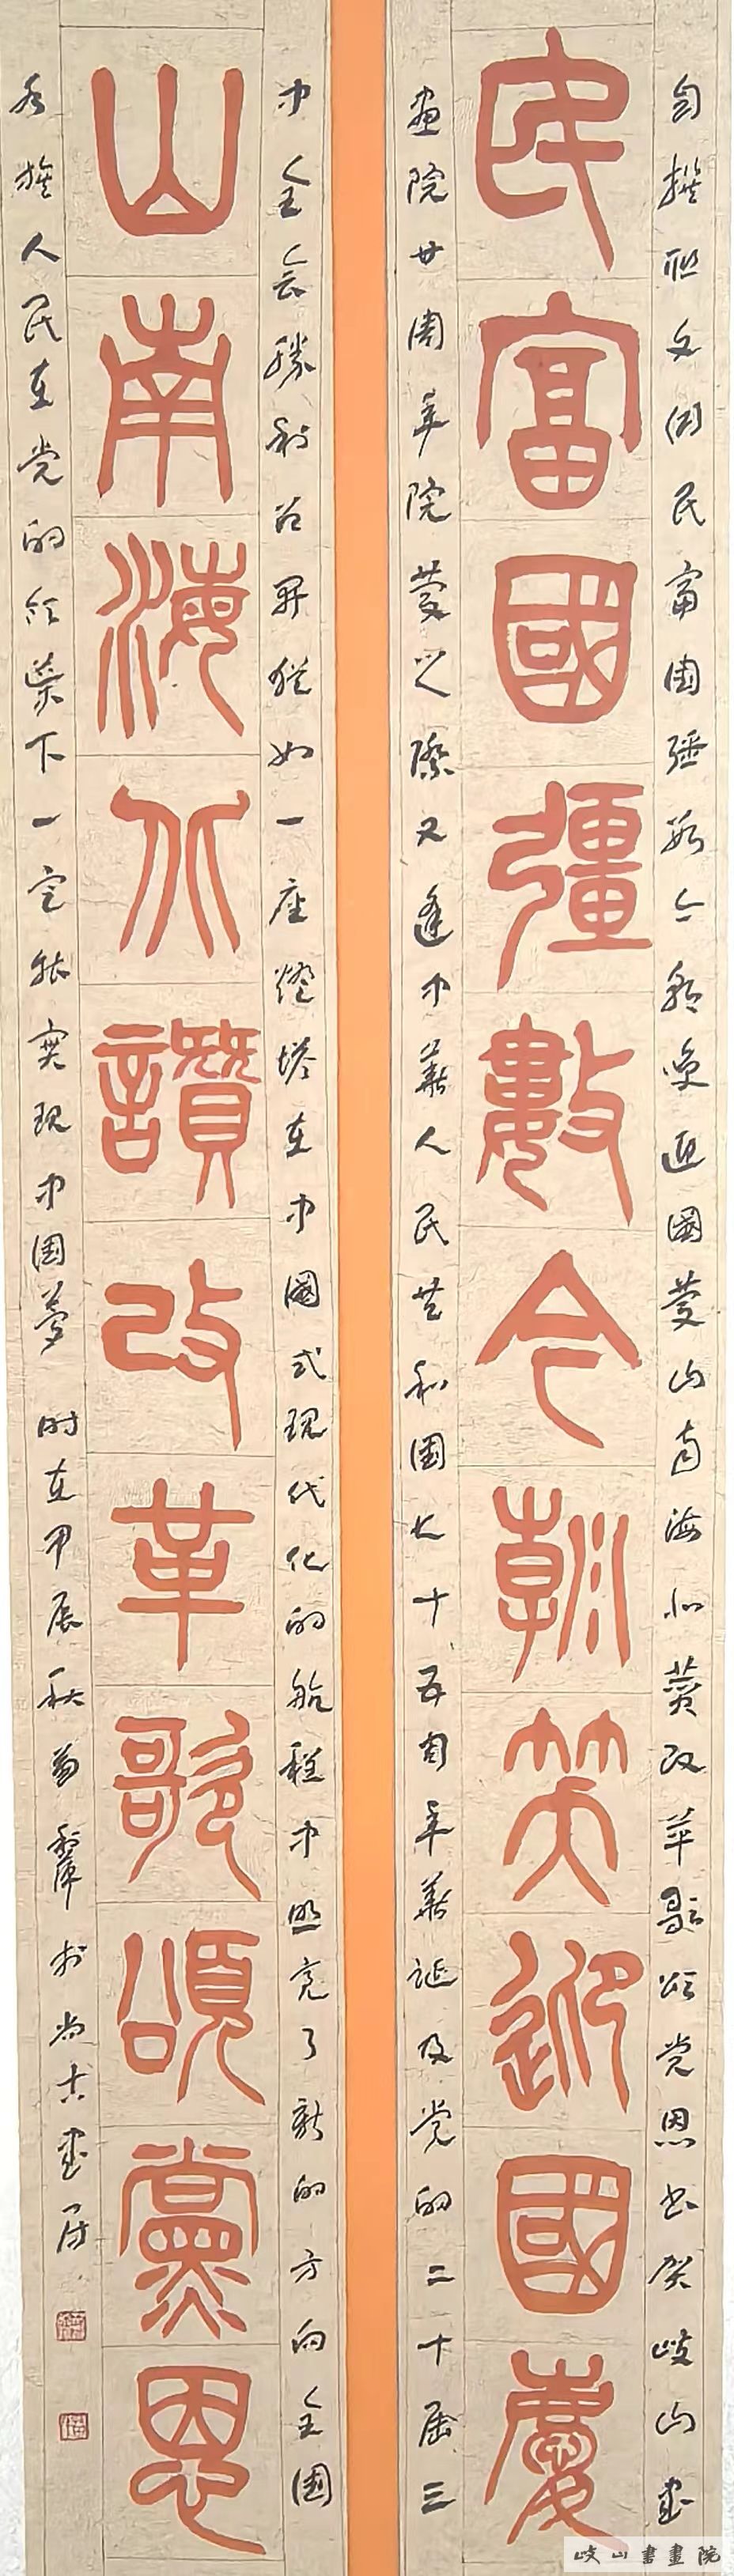 民富國彊數今朝笑迎國慶
山南海北讚改革歌頌黨恩
自撰联文因民富国强数今朝笑迎國庆山南海北赞改革歌颂党恩书贺岐山书
画院廿周年院庆之际又逢中华人民共和国七十五周年华诞及党的二十届三
中全会胜利召开犹如一座燈塔在中國式现代化的航程中照亮了新的方向全国
各族人民在党的领导下一定能实现中国梦 时在甲辰秋菊月 於尚古書居
岐山書畫院